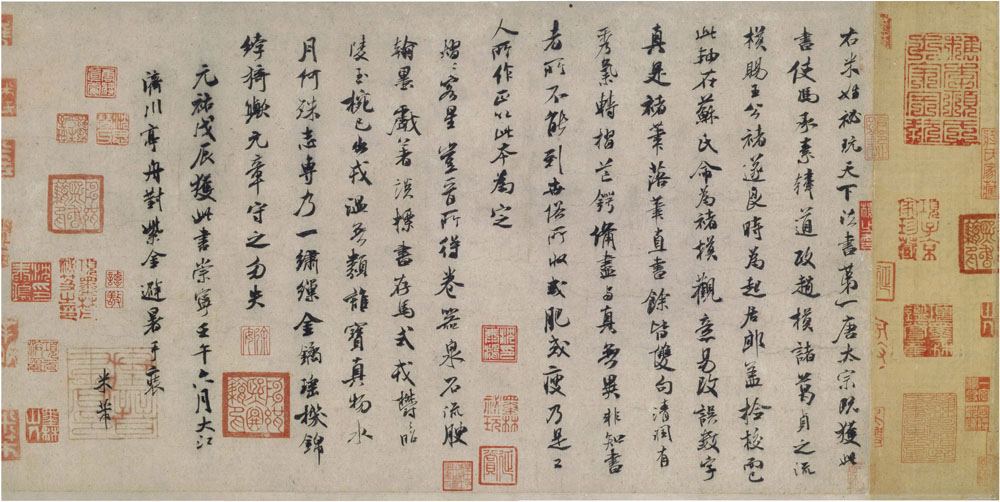 右米姓祕玩天下法書第一唐太宗既獲此
書使馮承素韓道政趙模諸葛貞之流
模賜王公褚遂良時為起居郎蓋檢校而已
此軸在蘇氏命為褚模觀意易改誤數字
真是褚筆落筆直書餘皆雙勾清潤有
秀氣轉摺芒鍔備盡与真無異非知書
者所不能到世俗所收或肥或瘦乃是工
人所作正以此本為定
熠〻客星豈晉所得卷器泉石流腴
翰墨戲著談標書存馬式戎欝〻昭
陵玉椀已出戎溫無類誰寶真物水
月何殊志專乃一繡繅金鐍瑤機錦
綷猗歟元章守之勿失
元祐戊辰獲此書崇寧壬午六月大江
濟川亭舟對紫金避暑手裝
米芾